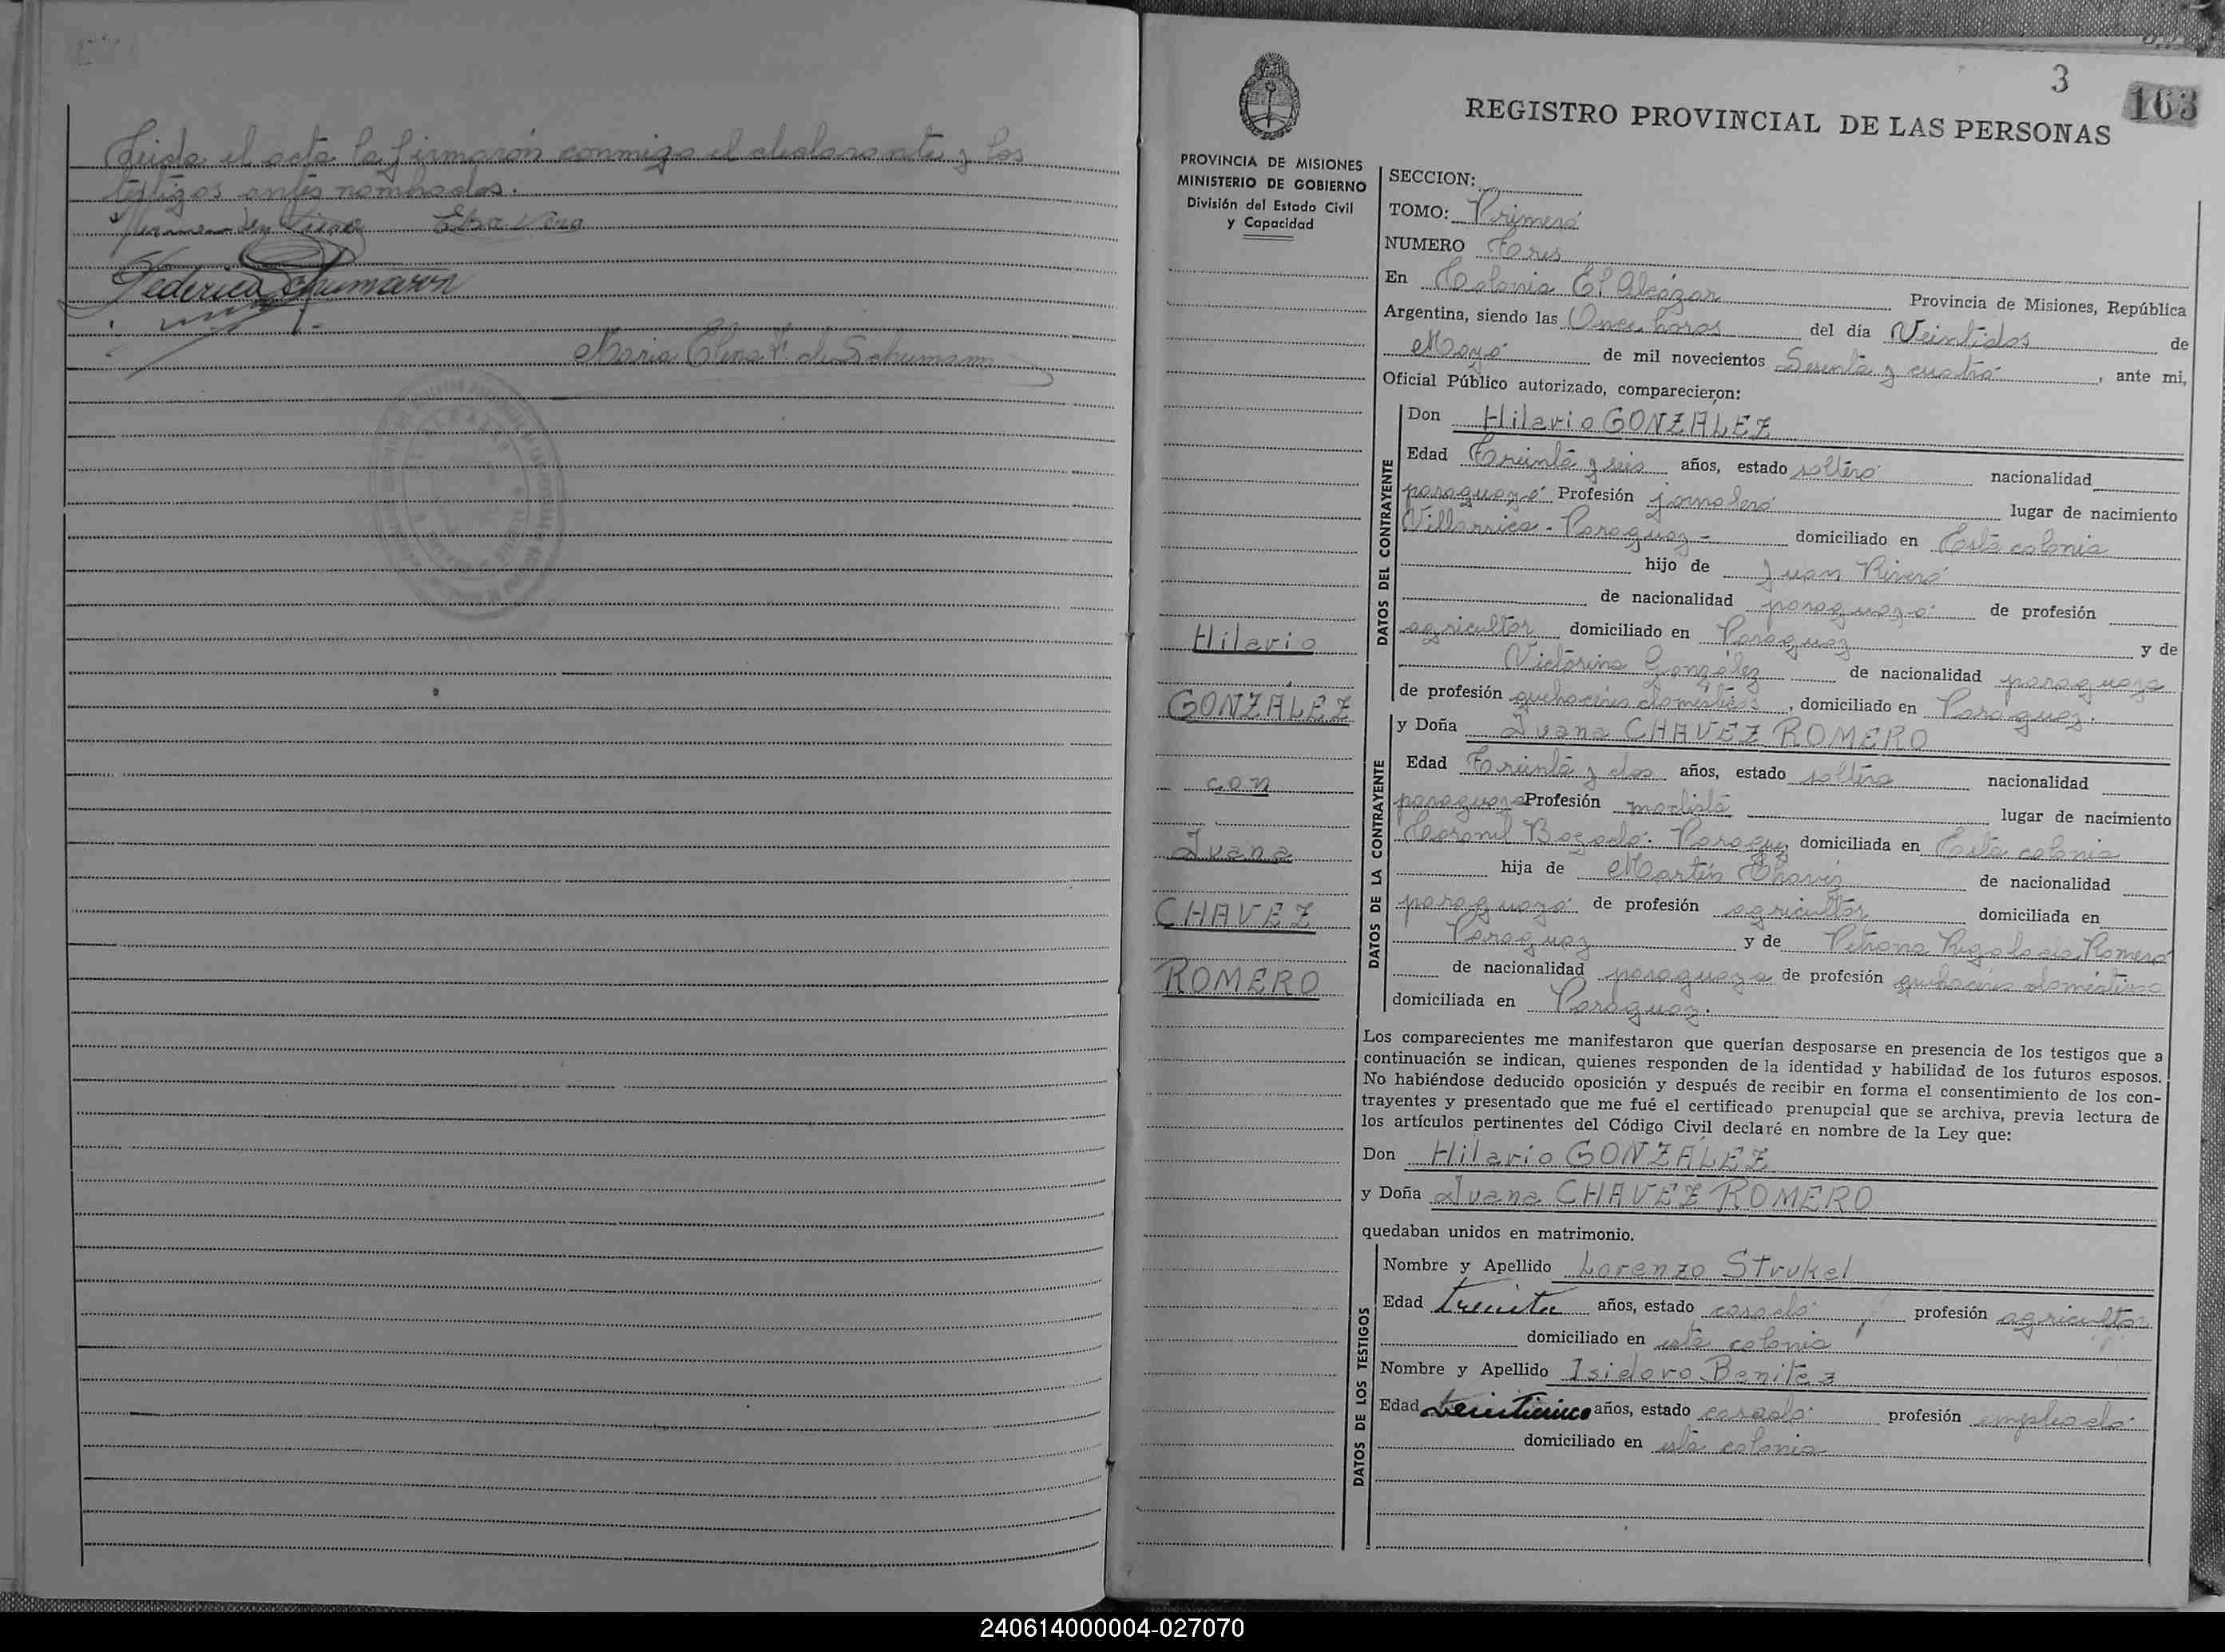 Leida el acta la firmarón conmigo el declarante y los
testigos antes nombrados.
Elsa Vera
Federico Schumann
Maria Elena V. de Schumann
3
163
REGISTRO PROVINCIAL DE LAS PERSONAS
PROVINCIA DE MISIONES
MINISTERIO DE GOBIERNO
División del Estado Civil
y Capacidad
Hilario
GONZÁLEZ
con
Juana
CHAVEZ
ROMERO
SECCION:
TOMO: Primero
NUMERO Tres
En Colonia El Alcázar Provincia de Misiones, República
Argentina, siendo las Once horas del día Veintidos de
Mayo de mil novecientos Sesenta y cuatro, ante mi,
Oficial Público autorizado, comparecieron:
DATOS DEL CONTRAYENTE
Don Hilario GONZÁLEZ
Edad Treinta y seis años, estado soltero nacionalidad
paraguayo Profesión jornalero lugar de nacimiento
Villarrica - Paraguay - domiciliado en Esta colonia
hijo de Juan Rivero
de nacionalidad paraguayo de profesión
agricultor domiciliado en Paraguay y de
Victorina González de nacionalidad paraguaya
de profesión quehaceres domésticos, domiciliado en Paraguay.
DATOS DE LA CONTRAYENTE
y Doña Juana CHAVEZ ROMERO
Edad Treinta y dos años, estado soltera nacionalidad
paraguaya Profesión modista lugar de nacimiento
Coronel Bogado. Paraguay domiciliada en Esta colonia
hija de Martín Chavez de nacionalidad
paraguayo de profesión agricultor domiciliada en
Paraguay y de Petrona Romero
de nacionalidad paraguaya de profesión quehaceres domésticos
domiciliada en Paraguay.
Los comparecientes me manifestaron que querían desposarse en presencia de los testigos que a
continuación se indican, quienes responden de la identidad y habilidad de los futuros esposos.
No habiéndose deducido oposición y después de recibir en forma el consentimiento de los con-
trayentes y presentado que me fué el certificado prenupcial que se archiva, previa lectura de
los artículos pertinentes del Código Civil declaré en nombre de la Ley que:
Don Hilario GONZÁLEZ
y Doña Juana CHAVEZ ROMERO
quedaban unidos en matrimonio.
DATOS DE LOS TESTIGOS
Nombre y Apellido Lorenzo Strukel
Edad treinta años, estado casado profesión agricultor
domiciliado en esta colonia
Nombre y Apellido Isidoro Benitez
Edad veinticinco años, estado casado profesión empleado
domiciliado en esta colonia
240614000004-027070